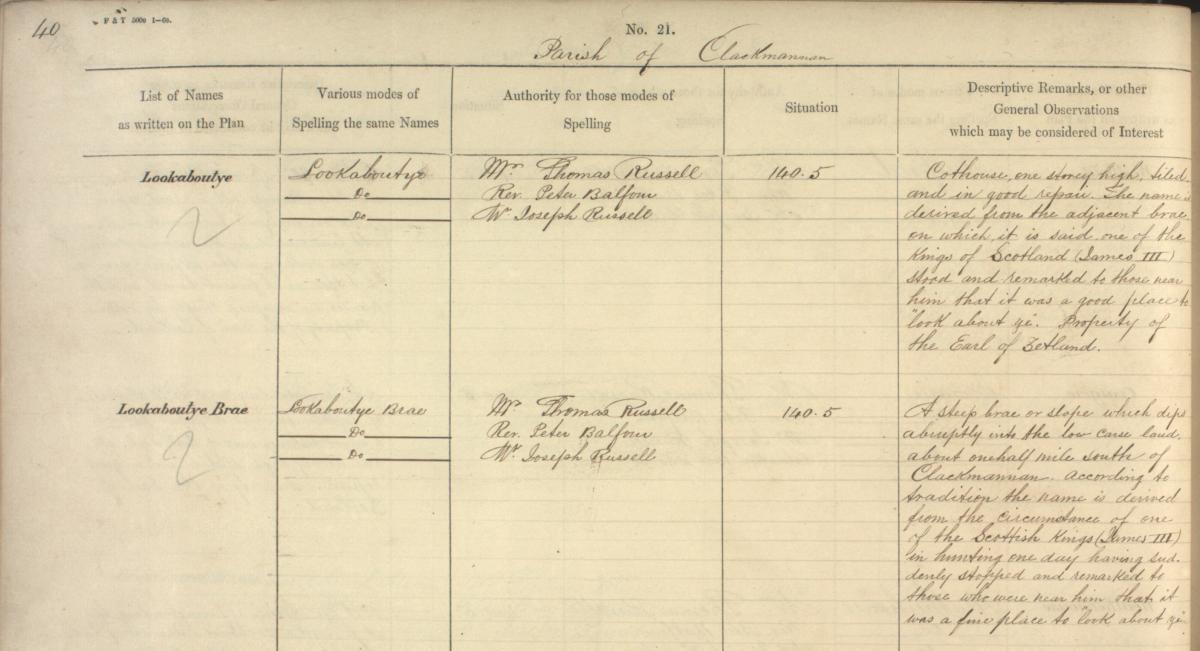 40
F & T 500s 1—60.
No. 21.
Parish of Clackmannan
List of Names
as written on the Plan
Various modes of
Spelling the same Names
Authority for those modes of
Spelling
Situation
Descriptive Remarks, or other
General Observations
which may be considered of Interest
Lookaboutye
Lookaboutye
Do
Do
Mr. Thomas Russell
Rev. Peter Balfour
Mr. Joseph Russell
140.5
Cothouse, one storey high, tiled
and in good repair. The name is
derived from the adjacent brae,
on which, it is said, one of the
Kings of Scotland (James III)
stood and remarked to those near
him that it was a good place to
"look about ye. Property of
the Earl of Zetland.
Lookaboutye Brae
Lookaboutye Brae
Do
Do
Mr. Thomas Russell
Rev. Peter Balfour
Mr. Joseph Russell
140.5
A steep brae or slope which dips
abruptly into the low carse land,
about onehalf mile south of
Clackmannan. According to
tradition the name is derived
from the circumstance of one
of the Scottish Kings (James III)
in hunting one day having sud-
denly stopped and remarked to
those who were near him that it
was a fine place to "look about ye.